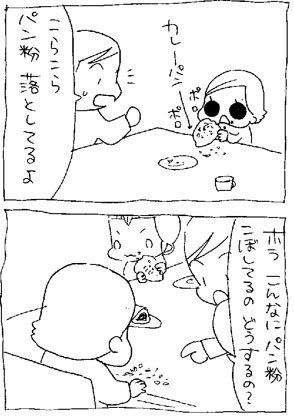 カレーパン→
ポロ
ポロ
こらこら
パン粉 落としてるよ
ホラ こんなに パン粉
こぼしてるの どうするの?